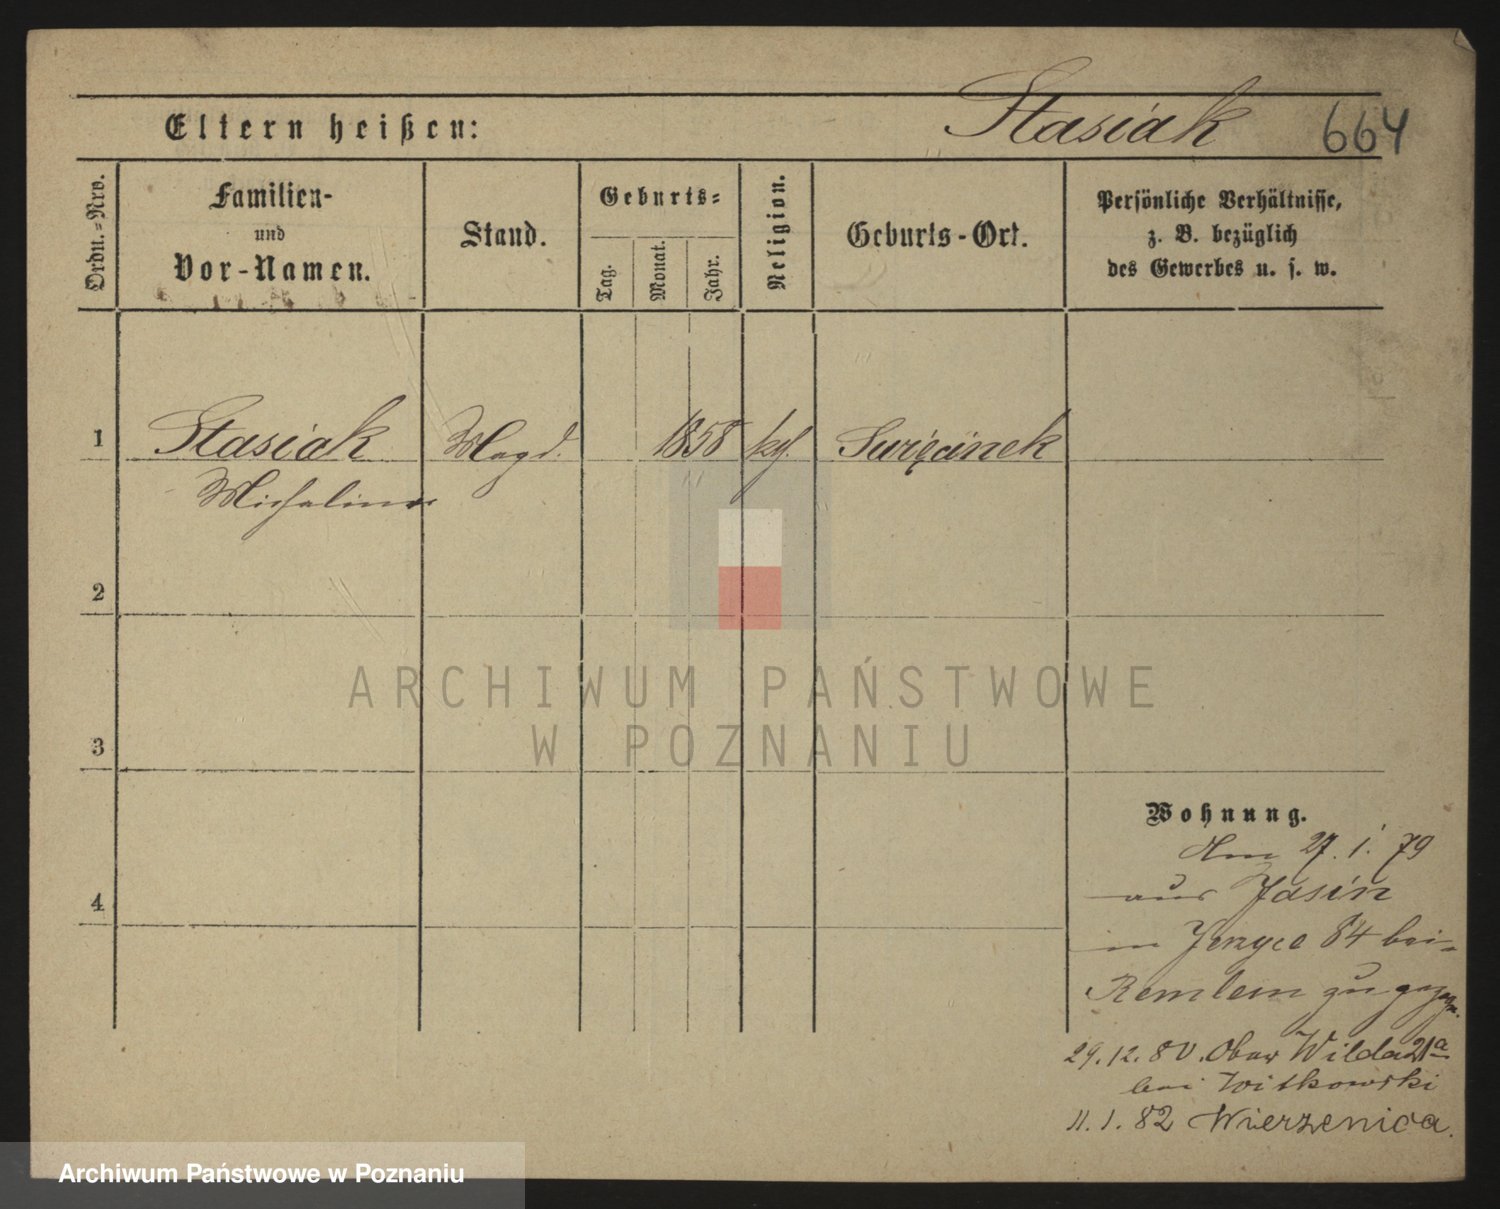 Eltern heißen: Stasiak 664
Ordn.=Nro.
Familien-
und
Vor-Namen.
Stand.
Geburts=
Tag.
Monat.
Jahr.
Religion.
Geburts-Ort.
Persönliche Verhältnisse,
z. B. bezüglich
des Gewerbes u. s. w.
1 Stasiak Magd. 1858 kth. Święcinek
Michalina
2
3
4
ARCHIWUM PAŃSTWOWE
W POZNANIU
Wohnung.
Am 27. 1. 79
aus Jasin
in Jerzyce 84 bei
Remlein zugezogen.
29. 12. 80. Ober Wilda 21a
bei Witkowski
11. 1. 82 Wierzenica.
Archiwum Państwowe w Poznaniu